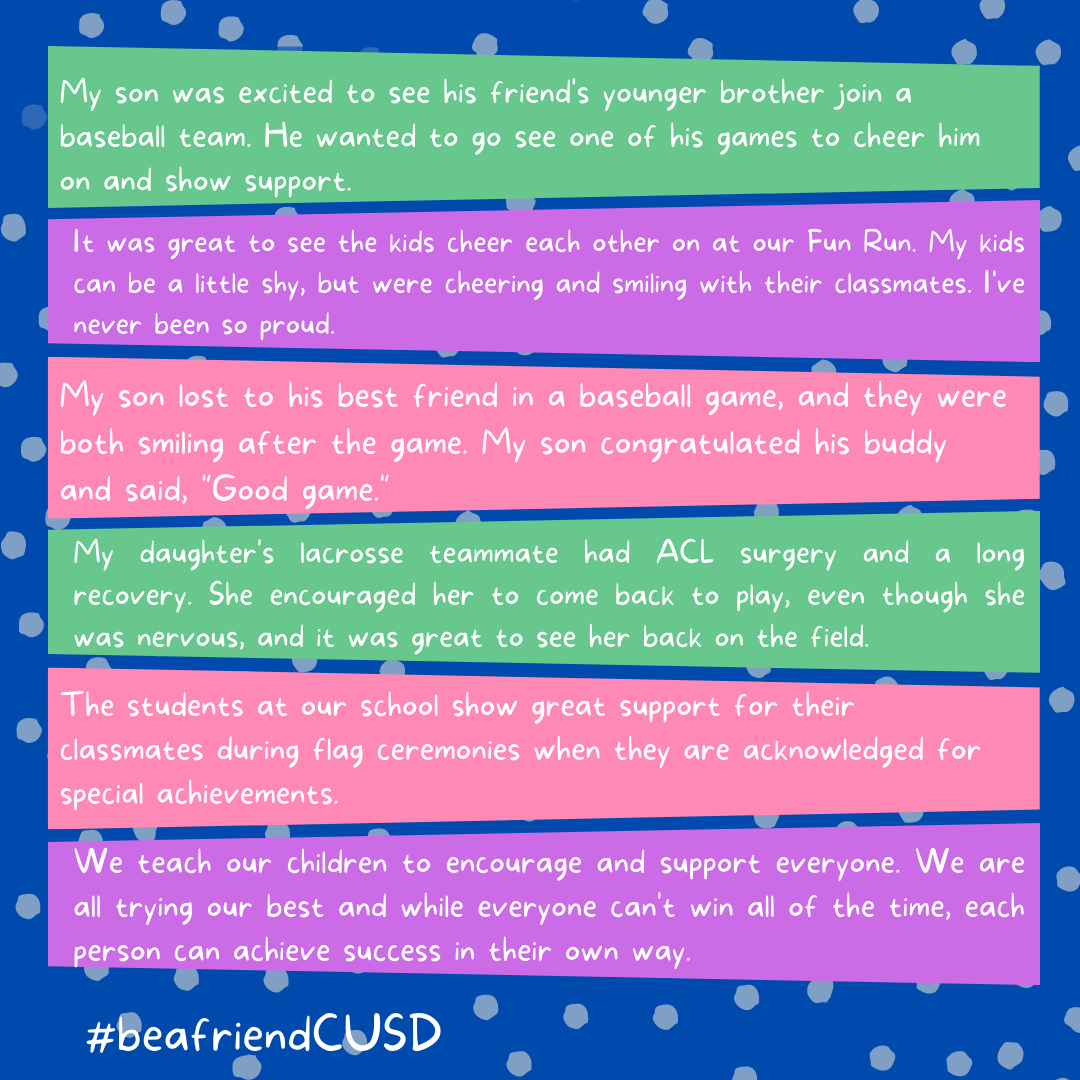 My son was excited to see his friend's younger brother join a
baseball team. He wanted to go see one of his games to cheer him
on and show support.
It was great to see the kids cheer each other on at our Fun Run. My kids
can be a little shy, but were cheering and smiling with their classmates. I've
never been so proud.
My son lost to his best friend in a baseball game, and they were
both smiling after the game. My son congratulated his buddy
and said, "Good game."
My daughter's lacrosse teammate had ACL surgery and a long
recovery. She encouraged her to come back to play, even though she
was nervous, and it was great to see her back on the field.
The students at our school show great support for their
classmates during flag ceremonies when they are acknowledged for
special achievements.
We teach our children to encourage and support everyone. We are
all trying our best and while everyone can't win all of the time, each
person can achieve success in their own way.
#beafriendCUSD